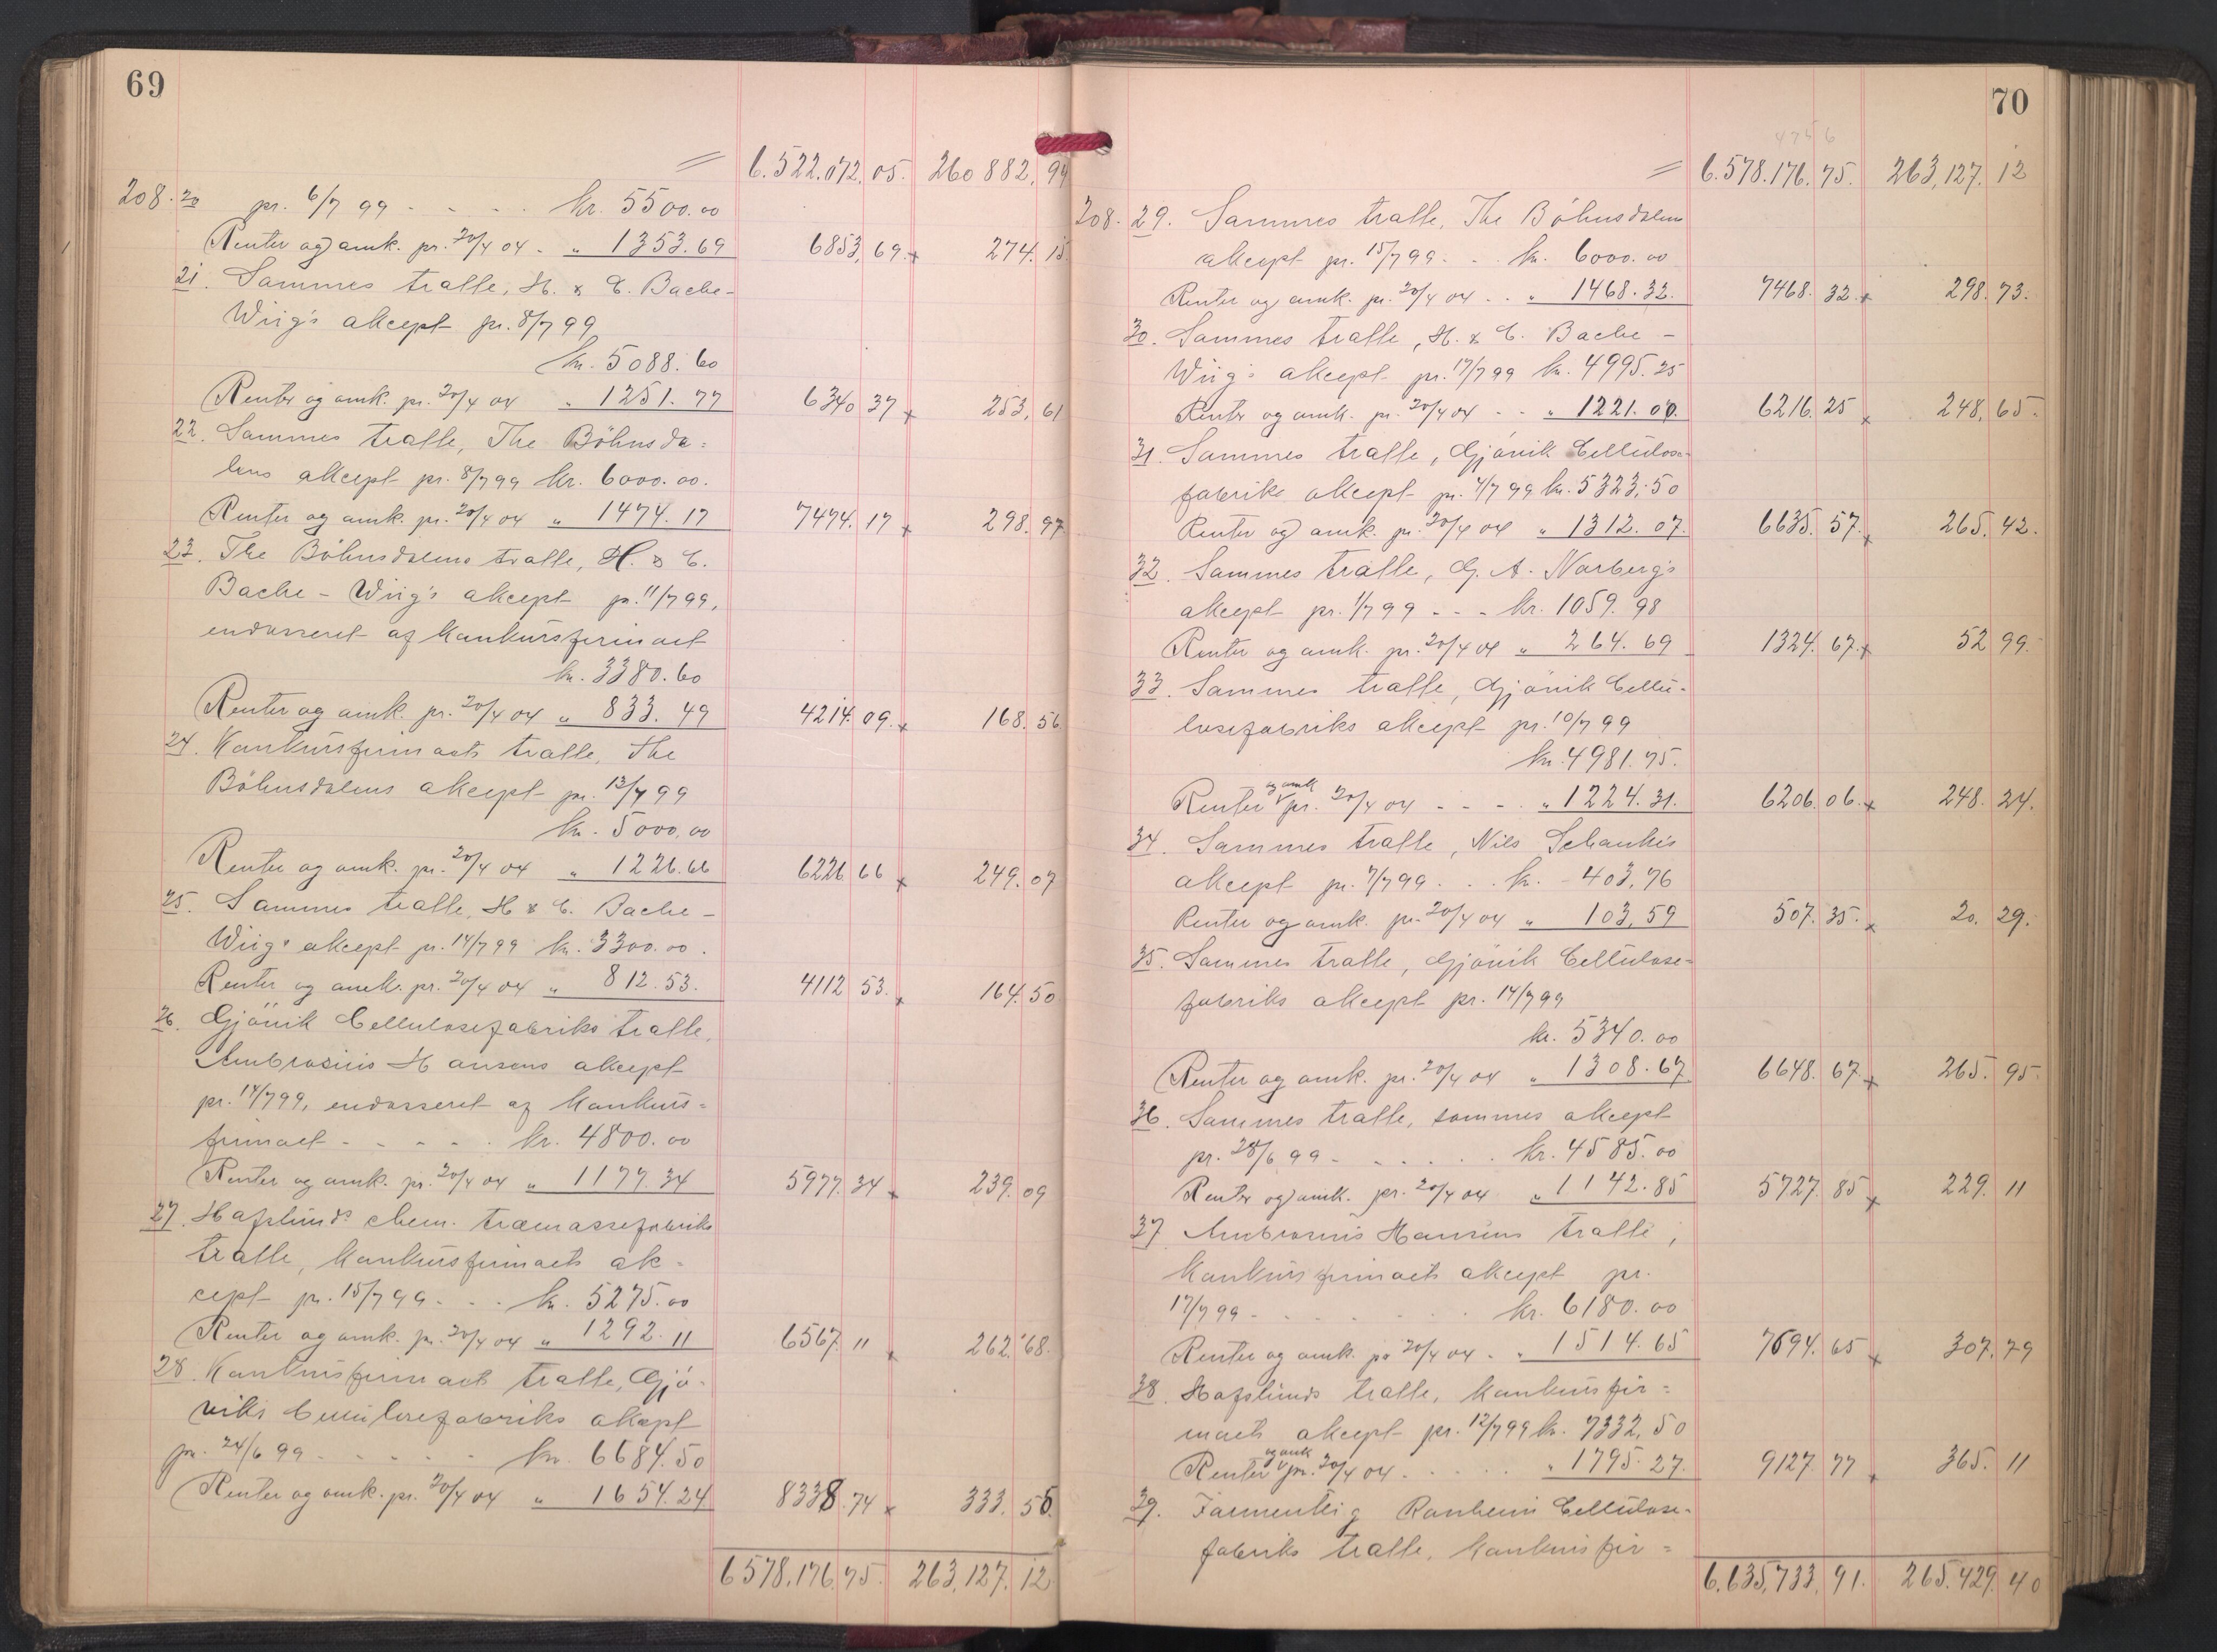 69
= 6.522.072.05. 260 882.94
208.20 pr. 6/7 99 - - - - kr. 5500.00
Renter og omk. pr. 20/4 04 - „ 1353.69 6853.69 274.15
21. Sammes tratte, H. & C. Bache-
Wiig's akcept pr. 8/7 99
kr. 5088.60
Renter og omk. pr. 20/4 04 „ 1251.77 6340 37 253.61
22. Sammes tratte, The Böhnsda=
lens akcept pr. 8/7 99 kr. 6000.00.
Renter og omk. pr. 20/4 04 „ 1474.17 7474.17 298.97
23. The Böhnsdalens tratte, H. & C.
Bache - Wiig's akcept pr. 11/7 99,
endosseret af konkursfirmaet
kr. 3380.60
Renter og omk. pr. 20/4 04 „ 833.49 4214.09. 168.56
24. Konkursfirmaets tratte, The
Böhnsdalens akcept pr. 13/7 99
kr. 5000.00
Renter og omk. pr. 20/4 04 „ 1226.66 6226 66 249.07
25. Sammes tratte, H & C. Bache -
Wiigs akcept pr. 14/7 99 kr. 3300.00.
Renter og omk. pr. 20/4 04 „ 812.53. 4112 53. 164.50
26. Gjövik Cellulosefabriks tratte,
Ambrosius Hansens akcept
pr. 14/7 99, endosseret af konkurs=
firmaet - - - - - kr. 4800.00
Renter og omk. pr. 20/4 04 „ 1177.34 5977.34 239.09
27. Hafslunds chem. træmassefabriks
tratte, konkursfirmaets ak-
cept pr. 15/7 99 - - - kr. 5275.00
Renter og omk. pr. 20/4 04 „ 1292.11 6567.11 262.68.
28. Konkursfirmaets tratte, Gjö-
viks Cellulosefabriks akcept
pr. 24/6 99 - - - - - kr. 6684.50
Renter og omk. pr. 20/4 04 „ 1654.24 8338.74 333.55.
6578.176.75. 263,127.12
70
4756
= 6.578.176.75. 263,127.12
208. 29. Sammes tratte, The Böhnsdalens
akcept pr. 15/7 99 - - kr. 6000.00
Renter og omk. pr. 20/4 04 - - „ 1468.32. 7468.32. 298.73.
30. Sammes tratte, H. & C. Bache -
Wiig's akcept pr. 17/7 99 kr. 4995.25
Renter og omk. pr. 20/4 04 - - „ 1221.00. 6216.25 248.65.
31. Sammes tratte, Gjövik Cellulose-
fabriks akcept pr. 4/7 99 kr. 5323.50
Renter og omk. pr. 20/4 04 „ 1312.07. 6635.57. 265.42.
32. Sammes tratte, G. A. Norberg's
akcept pr. 1/7 99 - - - kr. 1059.98
Renter og omk. pr. 20/4 04 „ 264.69 1324.67. 52 99.
33. Sammes tratte, Gjövik Cellu-
losefabriks akcept pr. 10/7 99
kr. 4981.75.
Renter og omk pr. 20/4 04 - - - - „ 1224.31. 6206.06. 248.24.
34. Sammes tratte, Nils Schankes
akcept pr. 7/7 99 - - - kr. - 403.76
Renter og omk. pr. 20/4 04 „ 103.59 507.35. 20.29.
35. Sammes tratte, Gjövik Cellulose=
fabriks akcept pr. 14/7 99
kr. 5340.00
Renter og omk. pr. 20/4 04 „ 1308.67 6648.67. 265.95.
36. Sammes tratte, sammes akcept
pr. 28/6 99 - - - - - - kr. 4585.00
Renter og omk. pr. 20/4 04 „ 1142.85 5727.85 229.11
37 Ambrosius Hansens tratte,
konkursfirmaets akcept pr.
17/7 99 - - - - - - kr. 6180.00
Renter og omk. pr 20/4 04 - „ 1514.65 7694.65 307.79
38. Hafslunds tratte, konkursfir=
maets akcept pr. 12/7 99 kr. 7332.50
Renter og omk pr. 20/4 04 - - - - - „ 1795.27. 9127.77 365.11
39. Ranheim Cellulose-
fabriks tratte, konkursfir=
6.635,733.91. 265.429.40